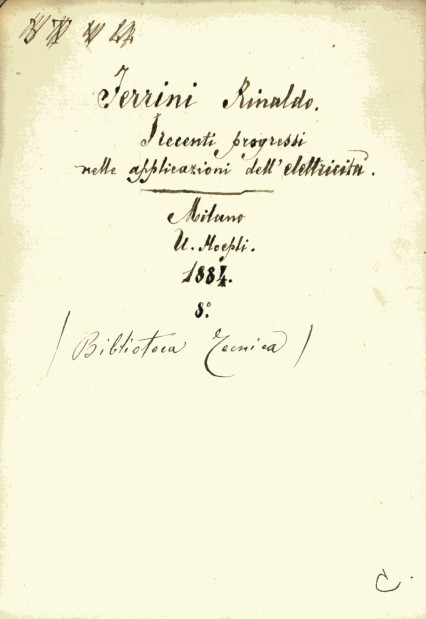 Ferrini Rinaldo.
I recenti progressi
nelle applicazioni dell'elettricità.
Milano
U. Hoepli.
1884.
8.º
(Biblioteca Tecnica)
C.